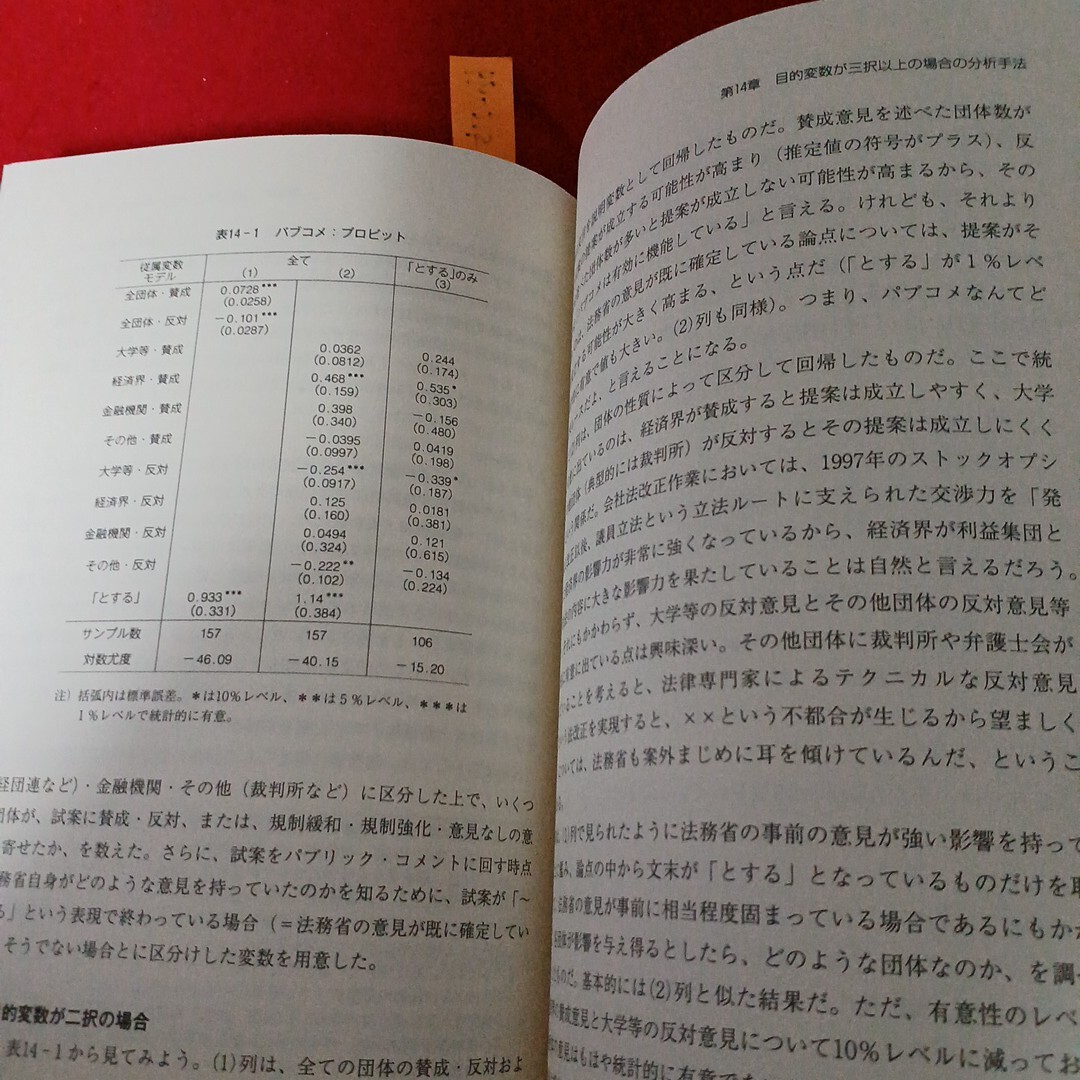 表14-1 パブコメ:プロビット
従属変数 全て 「とする」のみ
モデル (1) (2) (3)
全団体・賛成 0.0728***
(0.0258)
全団体・反対 -0.101***
(0.0287)
大学等・賛成 0.0362 0.244
(0.0812) (0.174)
経済界・賛成 0.468*** 0.535*
(0.159) (0.303)
金融機関・賛成 0.398 -0.156
(0.340) (0.480)
その他・賛成 -0.0395 0.0419
(0.0997) (0.198)
大学等・反対 -0.254*** -0.339*
(0.0917) (0.187)
経済界・反対 0.125 0.0181
(0.160) (0.381)
金融機関・反対 0.0494 0.121
(0.324) (0.615)
その他・反対 -0.222** -0.134
(0.102) (0.224)
「とする」 0.933*** 1.14***
(0.331) (0.384)
サンプル数 157 157 106
対数尤度 -46.09 -40.15 -15.20
注)括弧内は標準誤差。*は10%レベル、**は5%レベル、***は
1%レベルで統計的に有意。
経団連など)・金融機関・その他(裁判所など)に区分した上で、いくつ
団体が、試案に賛成・反対、または、規制緩和・規制強化・意見なしの意
寄せたか、を数えた。さらに、試案をパブリック・コメントに回す時点
務省自身がどのような意見を持っていたのかを知るために、試案が「~
る」という表現で終わっている場合(=法務省の意見が既に確定してい
そうでない場合とに区分けした変数を用意した。
的変数が二択の場合
表14-1から見てみよう。(1)列は、全ての団体の賛成・反対およ
第14章 目的変数が三択以上の場合の分析手法
説明変数として回帰したものだ。賛成意見を述べた団体数が
提案が成立する可能性が高まり(推定値の符号がプラス)、反
た団体数が多いと提案が成立しない可能性が高まるから、その
パブコメは有効に機能している」と言える。けれども、それより
は、法務省の意見が既に確定している論点については、提案がそ
する可能性が大きく高まる、という点だ(「とする」が1%レベ
有意で値も大きい。(2)列も同様)。つまり、パブコメなんてど
ースだよ、と言えることになる。
列は、団体の性質によって区分して回帰したものだ。ここで統
に出ているのは、経済界が賛成すると提案は成立しやすく、大学
団体(典型的には裁判所)が反対するとその提案は成立しにくく
う関係だ。会社法改正作業においては、1997年のストックオプシ
改正以後、議員立法という立法ルートに支えられた交渉力を「発
経済界の影響力が非常に強くなっているから、経済界が利益集団と
の内容に大きな影響力を果たしていることは自然と言えるだろう。
それにもかかわらず、大学等の反対意見とその他団体の反対意見等
に有意に出ている点は興味深い。その他団体に裁判所や弁護士会が
いることを考えると、法律専門家によるテクニカルな反対意見
いう法改正を実現すると、××という不都合が生じるから望ましく
については、法務省も案外まじめに耳を傾けているんだ、というこ
る。
(1)列で見られたように法務省の事前の意見が強い影響を持って
論点の中から文末が「とする」となっているものだけを取
法務省の意見が事前に相当程度固まっている場合であるにもかか
団体が影響を与え得るとしたら、どのような団体なのか、を調べ
ものだ。基本的には(2)列と似た結果だ。ただ、有意性のレベ
の賛成意見と大学等の反対意見について10%レベルに減ってお
意見はもはや統計的に有意でな